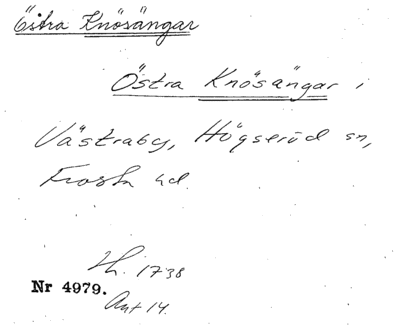 Östra Knösängar
Östra Knösängar i
Västraby, Högseröd sn,
Frosta hd.
Lh. 1738
Nr 4979.
Akt 14.